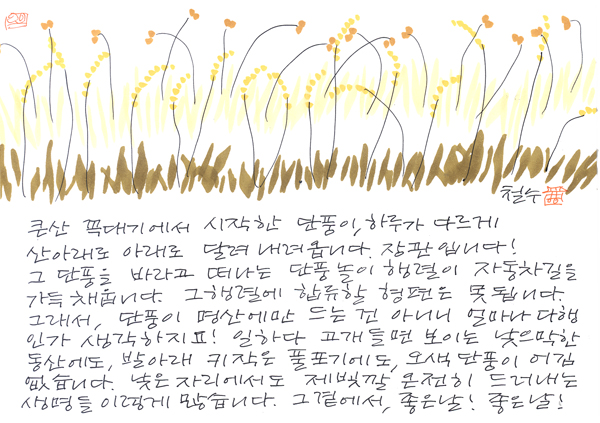 철수
큰산 꼭대기에서 시작한 단풍이, 하루가 다르게
산아래로 아래로 달려 내려옵니다. 장관입니다!
그 단풍을 바라고 떠나는 단풍놀이 행렬이 자동차길을
가득 채웁니다. 그행렬에 합류할 형편은 못됩니다.
그래서, 단풍이 명산에만 드는 건 아니니 얼마나 다행
인가 생각하지요! 일하다 고개들면 보이는 낮으막한
동산에도, 발아래 키작은 풀포기에도, 오색단풍이 어김
없습니다. 낮은 자리에서도 제빛깔 온전히 드러내는
생명들 이렇게 많습니다. 그곁에서, 좋은날! 좋은날!